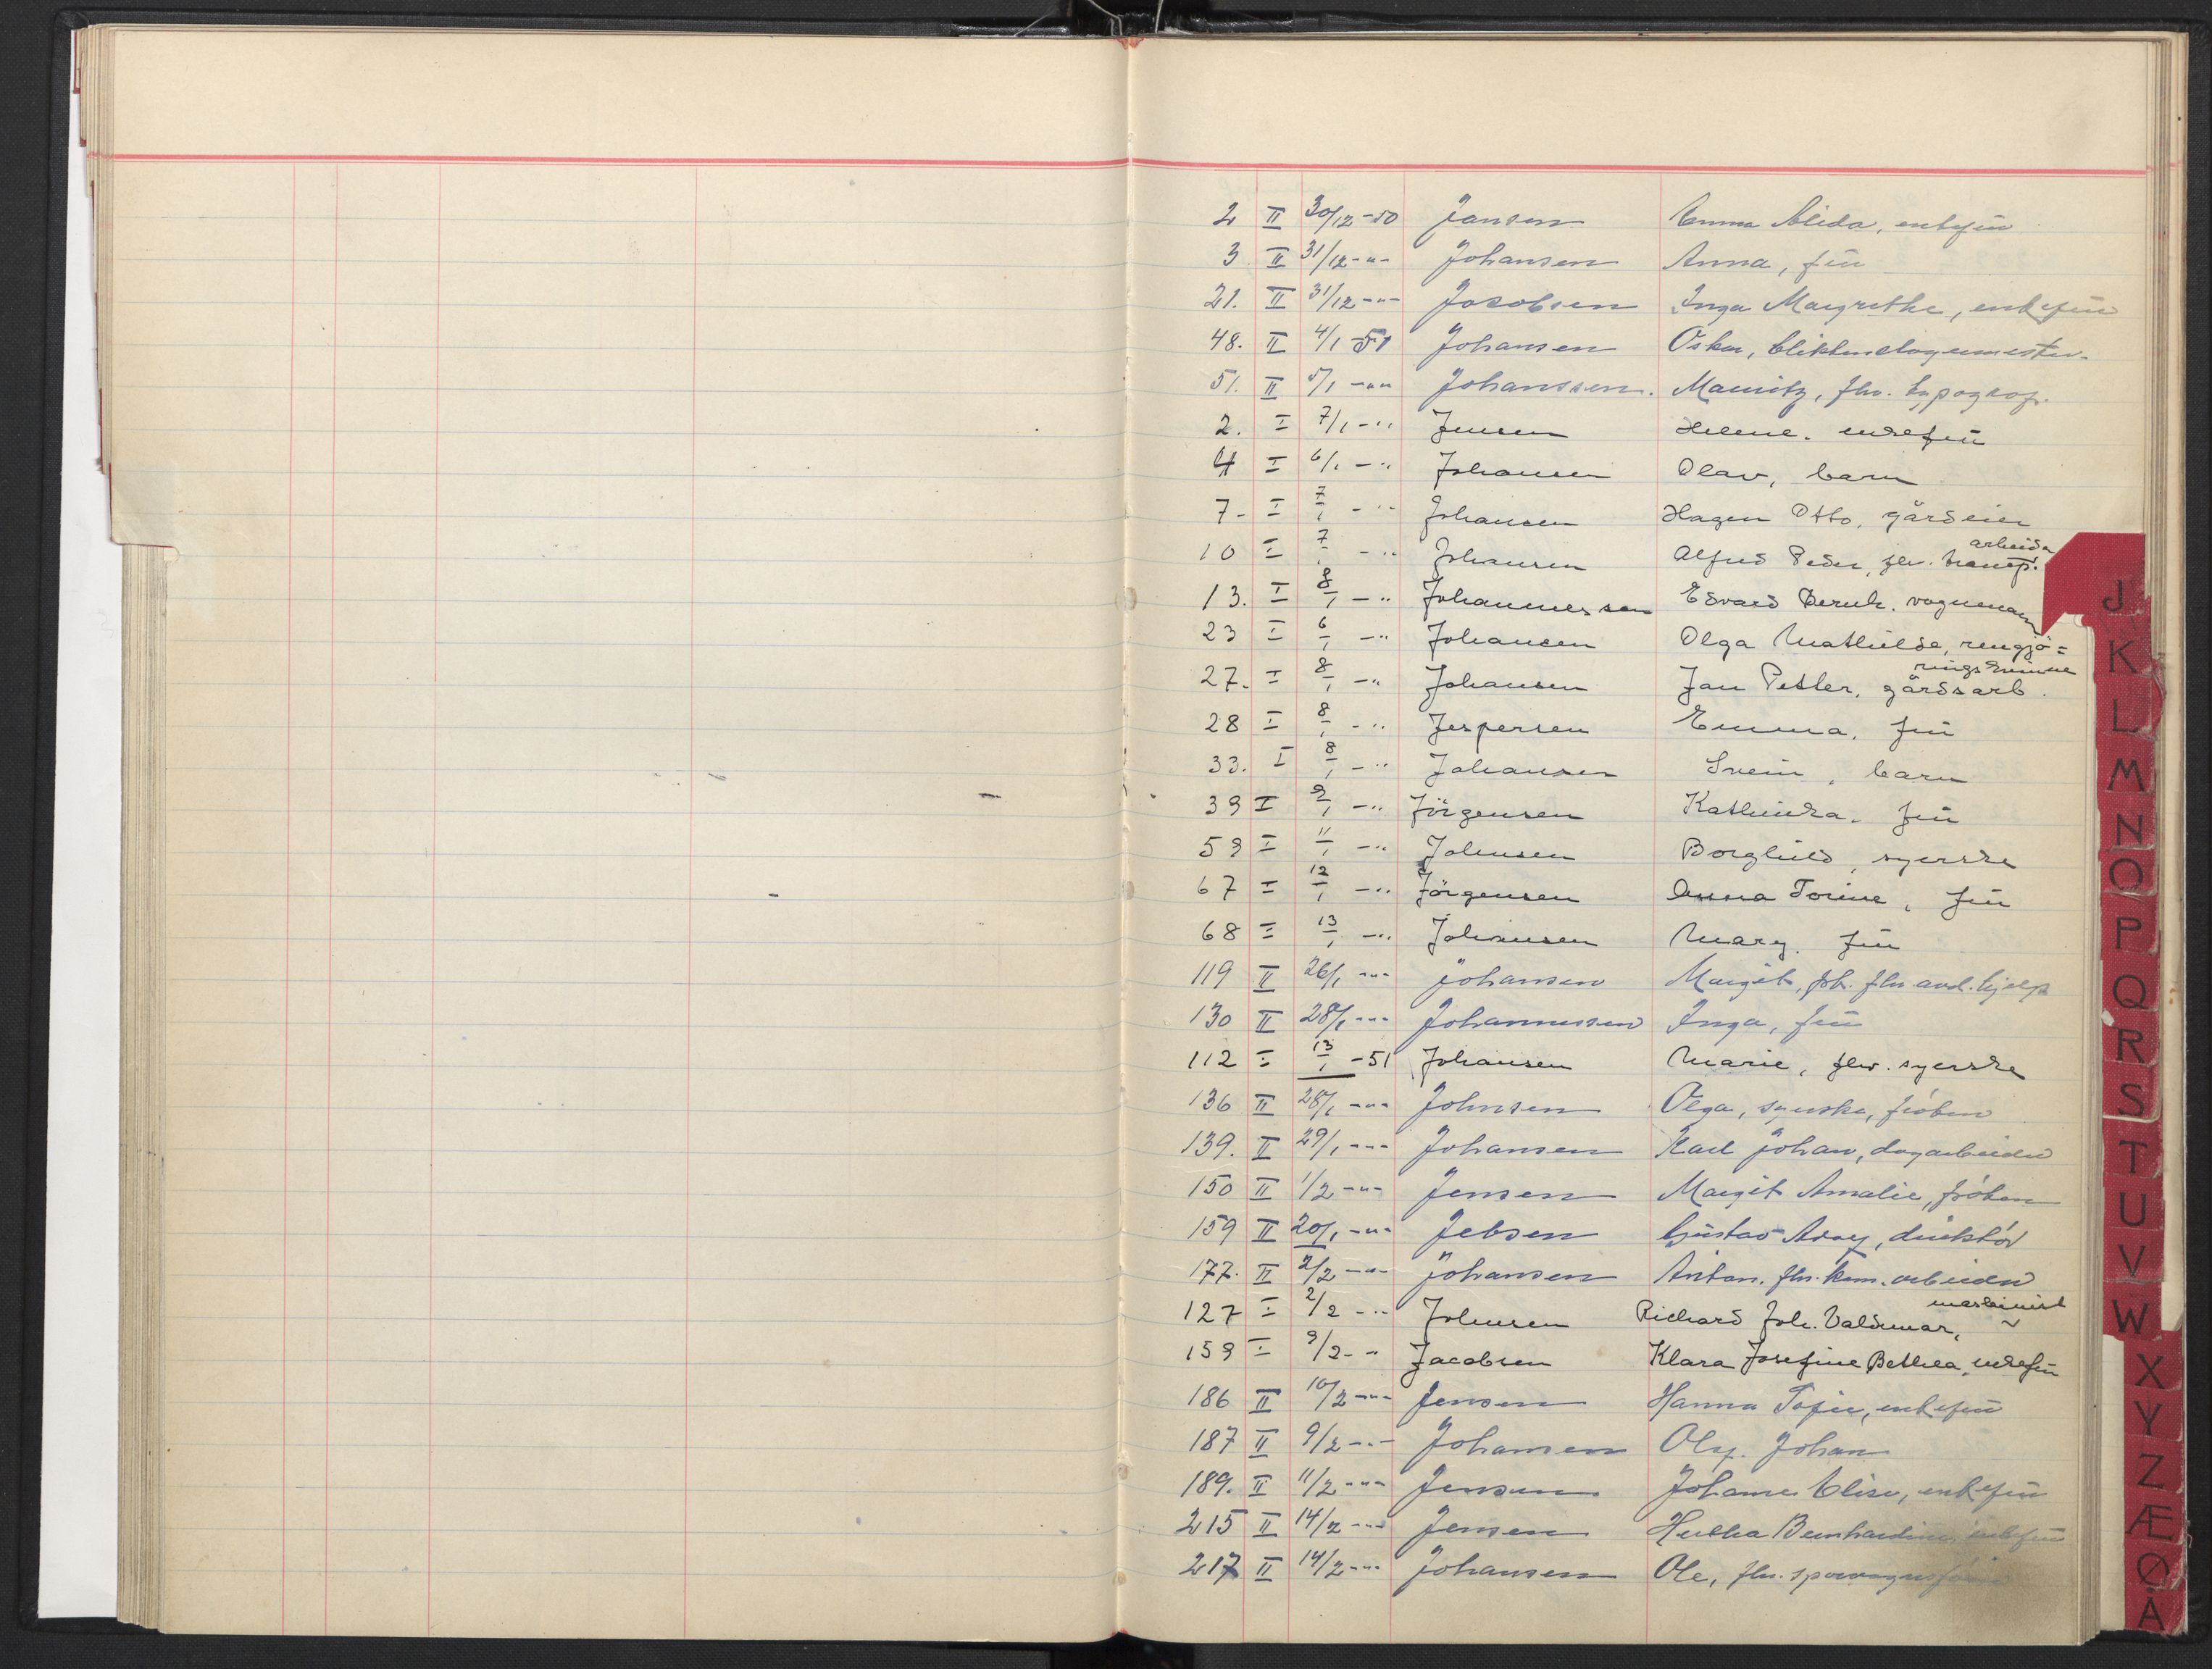 2 II 30/12-50 Jansen Emma Alida, enkefrū
3 II 31/12-"- Johansen Anna, frū
21. II 31/12-"- Jacobsen Inga Margrethe, enkefrū
48. II 4/1 51 Johansen Oskar, blikkenslagermester.
51. II 5/1 -"- Johanssen. Mauritz, fhv. typograf.
2. I 7/1 -" Jensen Helene. enkefrū
4 I 6/1 -" Johansen Olav, barn
7- I 7/1 -" Johansen Hagen Otto, gårdeier
arbeider
10 I 7/1 -" Johansen Alfred Peder, fhv. transp.
13. I 8/1 -" Johannessen Edvard Bernh. vognmann
23 I 6/1 -" Johansen Olga Mathilde, rengjö=
ringskvinne
27. I 8/1 -" Johansen Jan Petter, gårdsarb.
28 I 8/1 -" Jespersen Emma, frū
33. I 8/1 -" Johansen Svein, barn
39 I 9/1 -" Jörgensen Kathinka. frū
59 I 11/1 -" Johnsen Borghild, syerske
67 I 12/1 -" Jörgensen Anna Torine, frū
68 I 13/1 -" Johansen Mary. frū
119 II 26/1 -"- Johansen Margit, frk. fhv. avd. hjelp
130 II 28/1 -"- Johannessen Inga, frū
112 I 13/1 -51 Johansen Marie, fhv. syerske
136 II 28/1 -"- Johnsen Olga, syerske, fröken
139. II 29/1 -"- Johansen Karl Johan, dagarbeider
150 II 1/2 -"- Jensen Margit Amalie, fröken
159 II 20/1 -"- Jebsen Gustav Adny, direktör
177. II 2/2 -"- Johansen Anton. fhv. kom. arbeider
maskinist
127 I 2/2 -" Johnsen Richard Joh. Valdemar,
159 I 9/2 -" Jacobsen Klara Josefine Bethea, enkefrū
186 II 10/2 -"- Jensen Hanna Sofie, enkefrū
187 II 9/2 -"- Johansen Oly. Johan
189. II 11/2 -"- Jensen Johanne Elise, enkefrū
215 II 14/2 -"- Jensen Hulda Bernhardine, enkefrū
217 II 14/2 -"- Johansen Ole, fhv. sporvognsfører
J
K
L
M
N
O
P
Q
R
S
T
U
V
W
X
Y
Z
Æ
Ø
Å